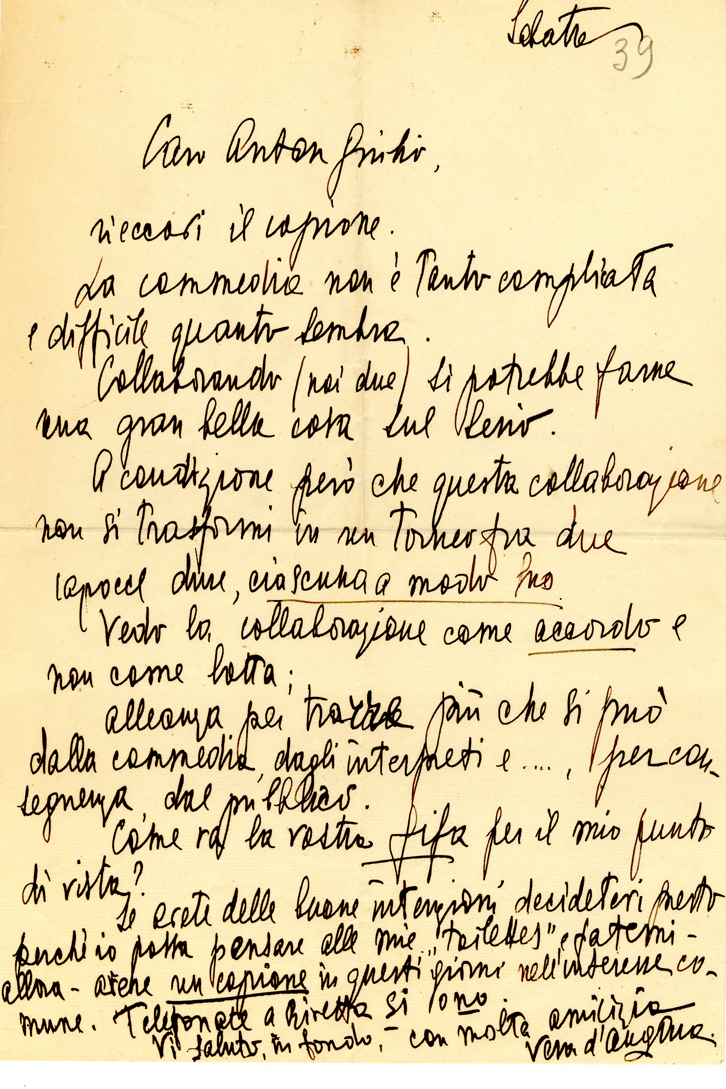 Sabato
39
Caro Anton Giulio,
rieccovi il copione.
La commedia non è tanto complicata
e difficile quanto sembra.
Collaborando (noi due) si potrebbe farne
una gran bella cosa sul serio.
A condizione però che questa collaborazione
non si trasformi in un torneo fra due
capocce dure, ciascuna a modo suo.
Vedo la collaborazione come accordo e
non come lotta;
alleanza per trarre più che si può
dalla commedia, dagli interpreti e...., per con-
seguenza, dal pubblico.
Come va la vostra fifa per il mio punto
di vista?
Se avete delle buone intenzioni decidetevi presto
perchè io possa pensare alle mie "toilettes", e fatemi -
allora - avere un copione in questi giorni nell'interesse co-
mune. Telefonate a si o no.
Vi saluto, in fondo, - con molta amicizia
Vera d'Angara.